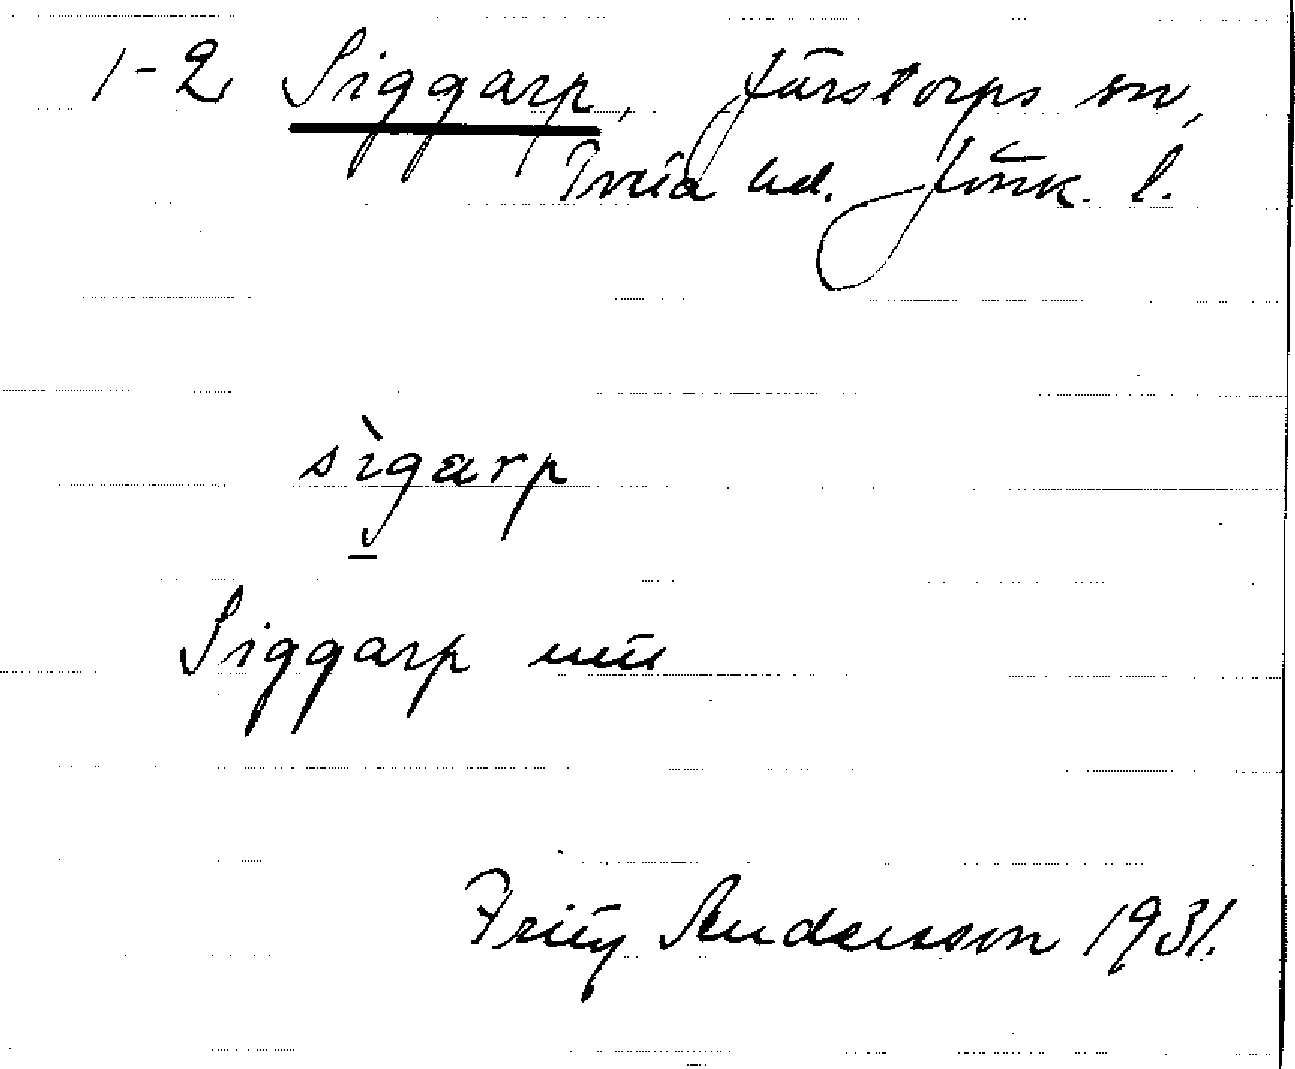 1-2 Siggarp, Järstorps sn,
Tveta hd. Jönk. l.
sìgarp
Siggarp
Fritz Andersson 1931.